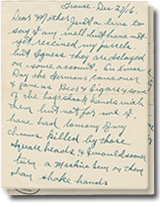 France. Dec 27/16.
Dear Mother Just a line to
say I am well but have not
yet received my parcels
but I guess they are delayed
on some account. On Xmas
Day the Germans came over
to us as Beer & Cigars & some
of the boys shook hands with
them but not for me I
have had to many of my
chums killed by those
Square heads & I would sooner
turn a Machine Gun on them
than shake hands